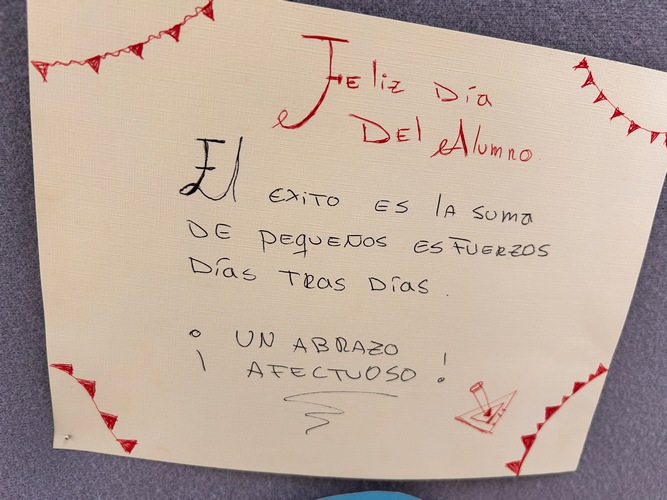 Feliz Día
Del Alumno
El exito es la suma
DE pequeños esfuerzos
Días tras Días.
¡ UN ABRAZO
AFECTUOSO !